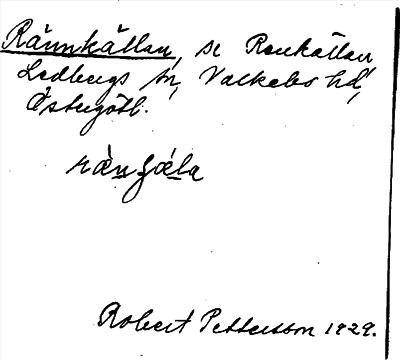 Rännkällan, se Renkällan,
Ledbergs sn, Valkebo hd,
Östergötl.
Robert Pettersson 1929.